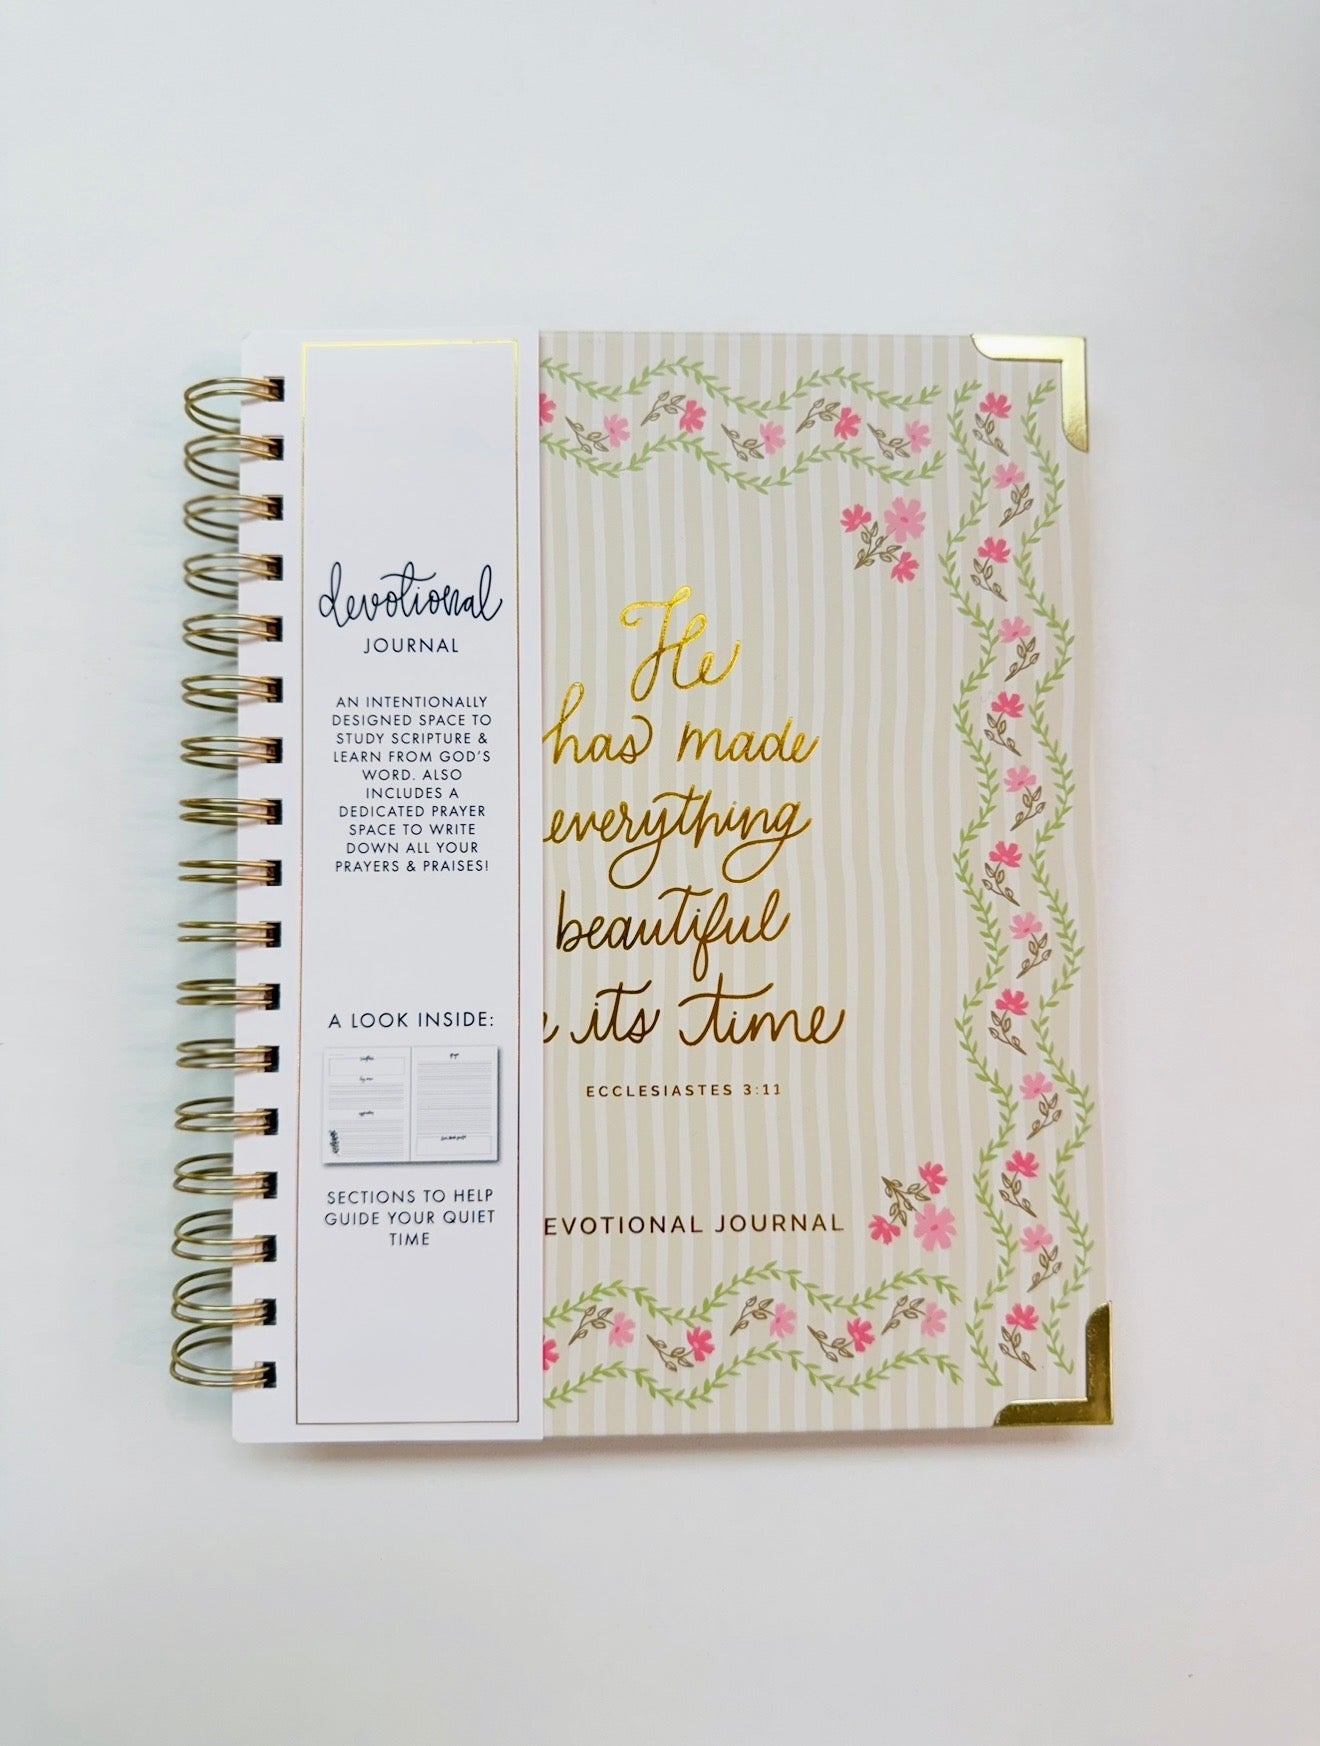 devotional
JOURNAL
AN INTENTIONALLY
DESIGNED SPACE TO
STUDY SCRIPTURE &
LEARN FROM GOD'S
WORD. ALSO
INCLUDES A
DEDICATED PRAYER
SPACE TO WRITE
DOWN ALL YOUR
PRAYERS & PRAISES!
A LOOK INSIDE:
SECTIONS TO HELP
GUIDE YOUR QUIET
TIME
He
has made
everything
beautiful
its time
ECCLESIASTES 3:11
EVOTIONAL JOURNAL